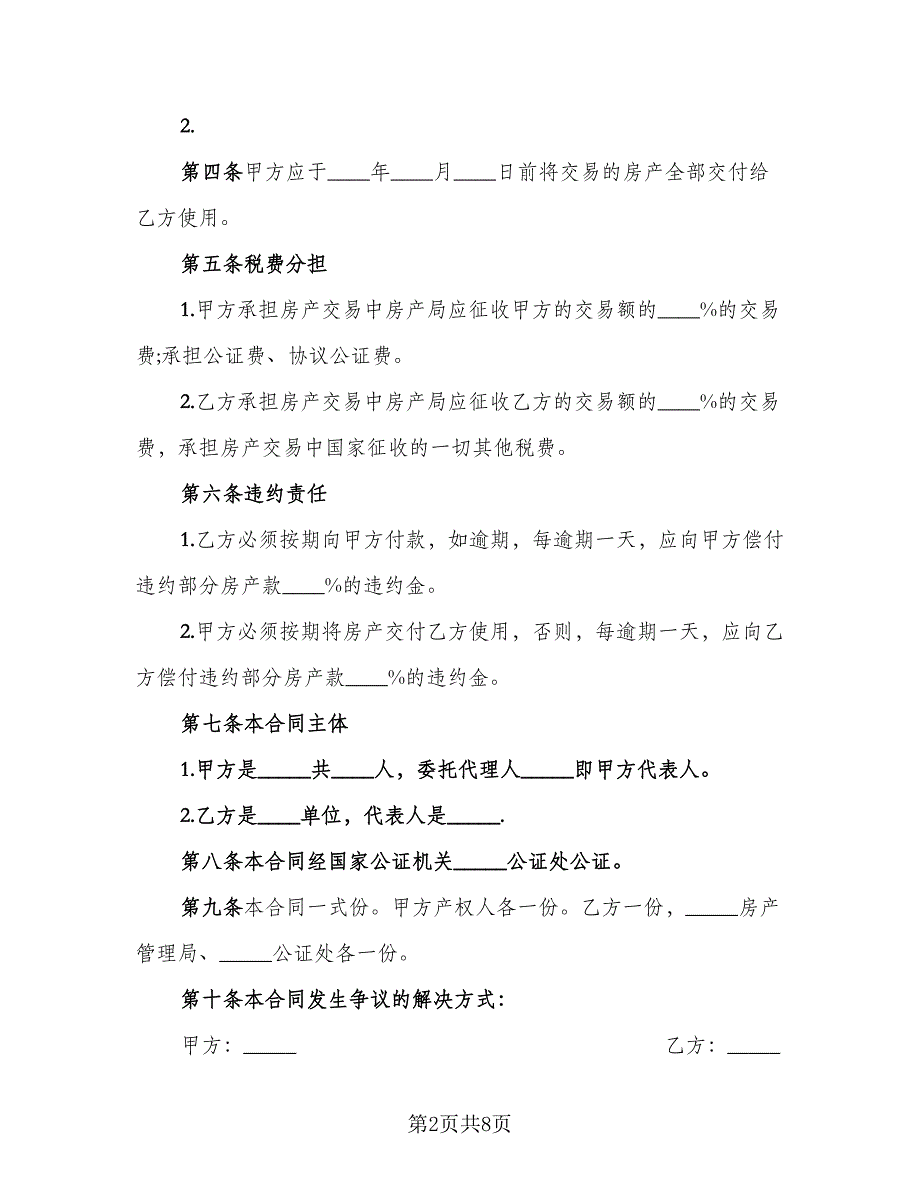 2.
第四条甲方应于____年____月____日前将交易的房产全部交付给
乙方使用。
第五条税费分担
1.甲方承担房产交易中房产局应征收甲方的交易额的____%的交易
费;承担公证费、协议公证费。
2.乙方承担房产交易中房产局应征收乙方的交易额的____%的交易
费，承担房产交易中国家征收的一切其他税费。
第六条违约责任
1.乙方必须按期向甲方付款，如逾期，每逾期一天，应向甲方偿付
违约部分房产款____%的违约金。
2.甲方必须按期将房产交付乙方使用，否则，每逾期一天，应向乙
方偿付违约部分房产款____%的违约金。
第七条本合同主体
1.甲方是_____共____人，委托代理人_____即甲方代表人。
2.乙方是____单位，代表人是_____.
第八条本合同经国家公证机关_____公证处公证。
第九条本合同一式份。甲方产权人各一份。乙方一份，_____房产
管理局、_____公证处各一份。
第十条本合同发生争议的解决方式：
甲方：_____ 乙方：_____
第2页共8页